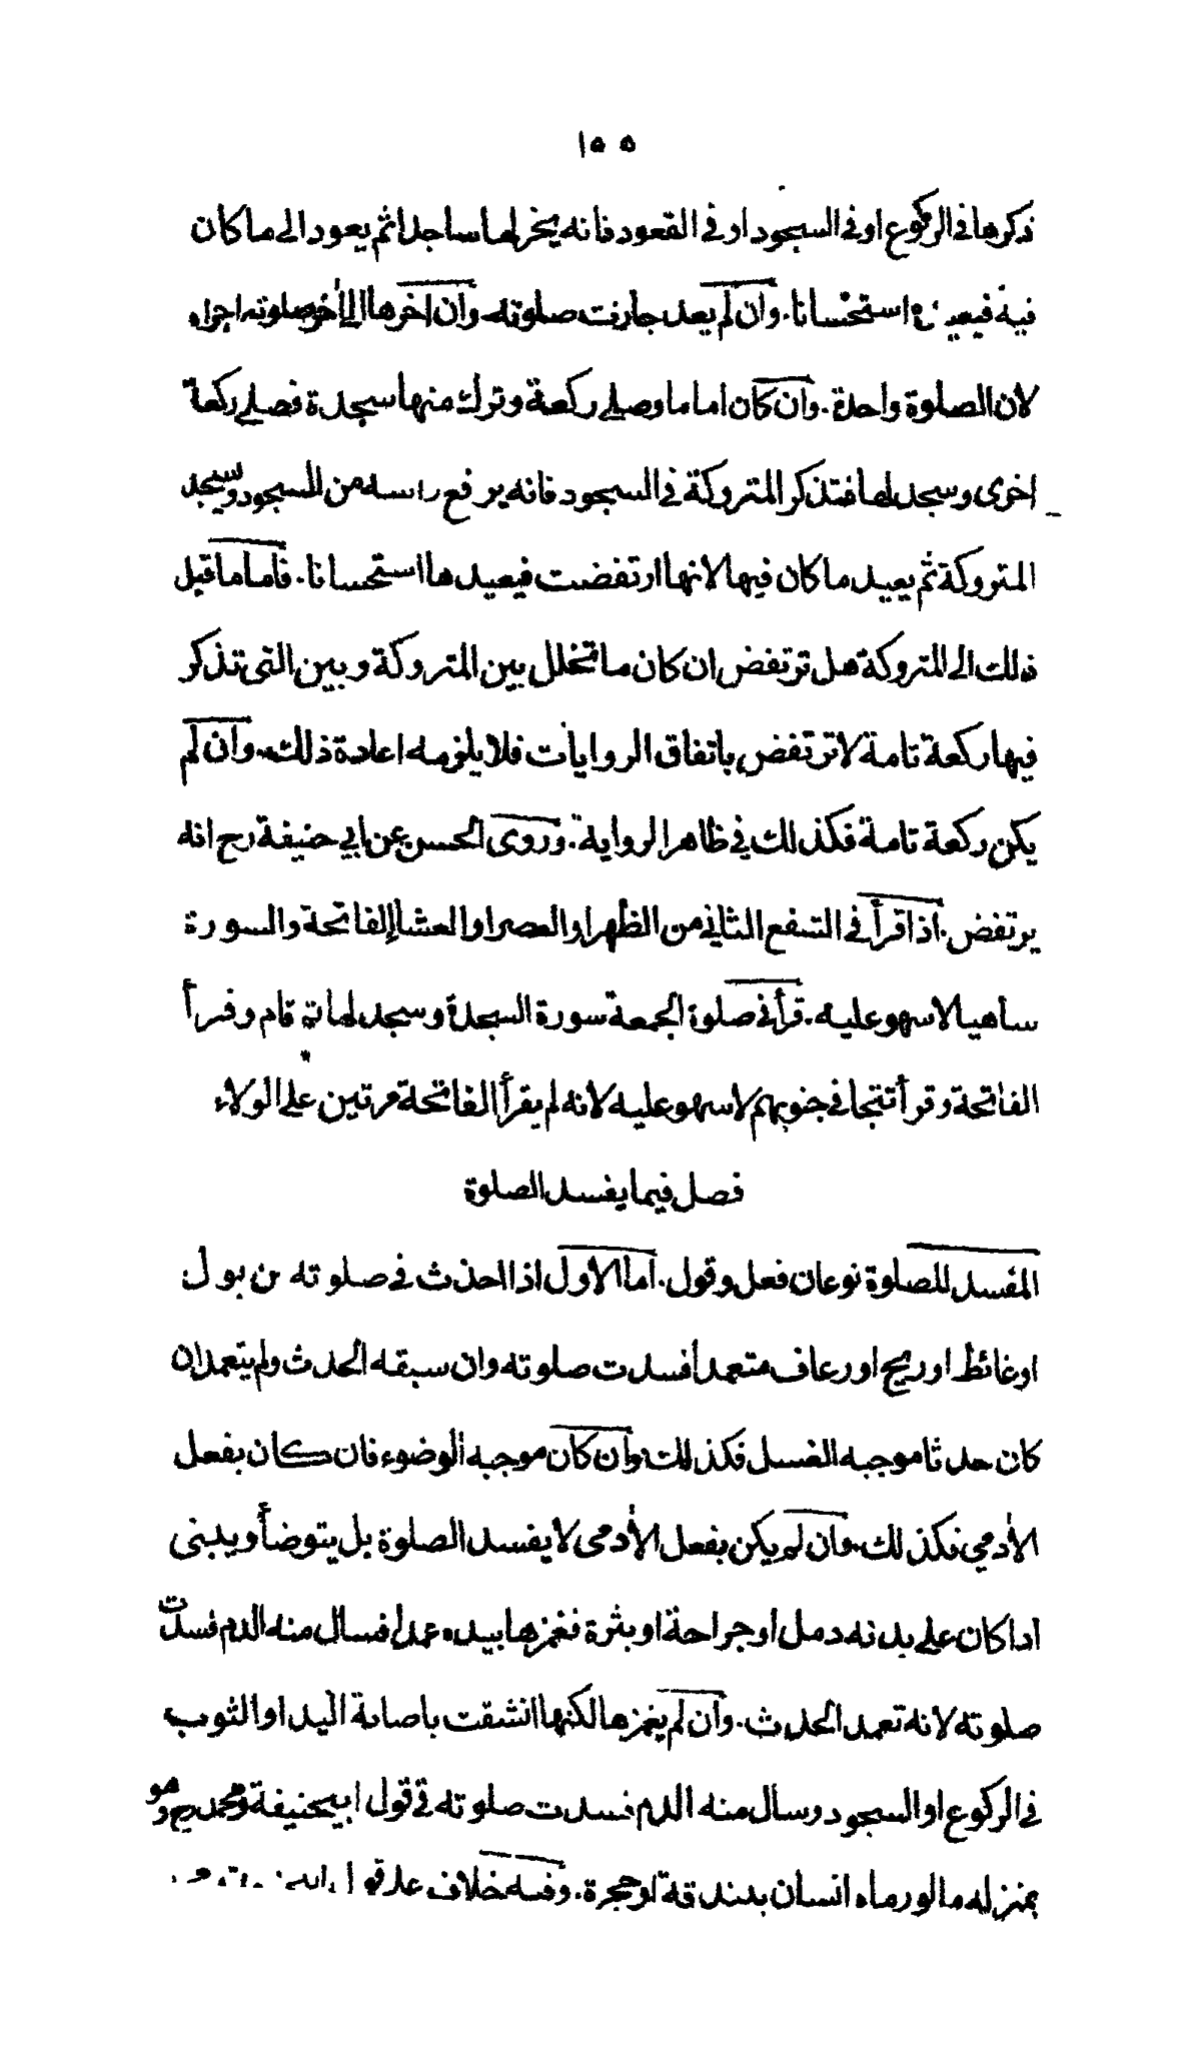 ١٥٥
ذكرها في الركوع او في السجود او في القعود فانه يخر لها ساجدا ثم يعود الى ما كان
فيه فيعيده استحسانا. وان لم يعد جازت صلوته وان اخرها الى اٰخر صلوته اجزاه
لان الصلوة واحدة. وان كان اماما وصلى ركعة وترك منها سجدة فصلى ركعة
اخرى وسجد لها فتذكر المتروكة في السجود فانه يرفع راسه من السجود ويسجد
المتروكة ثم يعيد ما كان فيها لانها ارتفضت فيعيدها استحسانا. فاما ما قبل
ذلك الى المتروكة هل ترتفض ان كان ما تخلل بين المتروكة وبين التى تذكر
فيها ركعة تامة لا ترتفض باتفاق الروايات فلا يلزمه اعادة ذلك. وان لم
يكن ركعة تامة فكذلك في ظاهر الرواية. وروى الحسن عن ابي حنيفة رح انه
يرتفض. اذا قرأ في الشفع الثاني من الظهر او العصر او العشاء الفاتحة والسورة
ساهيا لا سهو عليه. قرأ في صلوة الجمعة سورة السجدة وسجد لها ثم قام وقرأ
الفاتحة وقرأ تتجافى جنوبهم لا سهو عليه لانه لم يقرأ الفاتحة مرتين على الولاء
فصل فيما يفسد الصلوة
المفسد للصلوة نوعان فعل وقول. اما الاول اذا احدث في صلوته من بول
او غائط او ريح او رعاف متعمدا فسدت صلوته وان سبقه الحدث ولم يتعمد ان
كان حدثا موجبه الغسل فكذلك وان كان موجبه الوضوء فان كان بفعل
الاٰدمي فكذلك. وان لم يكن بفعل الاٰدمى لا يفسد الصلوة بل يتوضأ ويبنى
اذا كان على بدنه دمل او جراحة او بثرة فغمزها بيده عمدا فسال منه الدم فسدت
صلوته لانه تعمد الحدث. وان لم يغمزها لكنها انشقت باصابة اليد او الثوب
في الركوع او السجود وسال منه الدم فسدت صلوته في قول ابيحنيفة ومحمد رح وهو
بمنزله ما لو رماه انسان ببندقة او حجرة. وفيه خلاف على قول